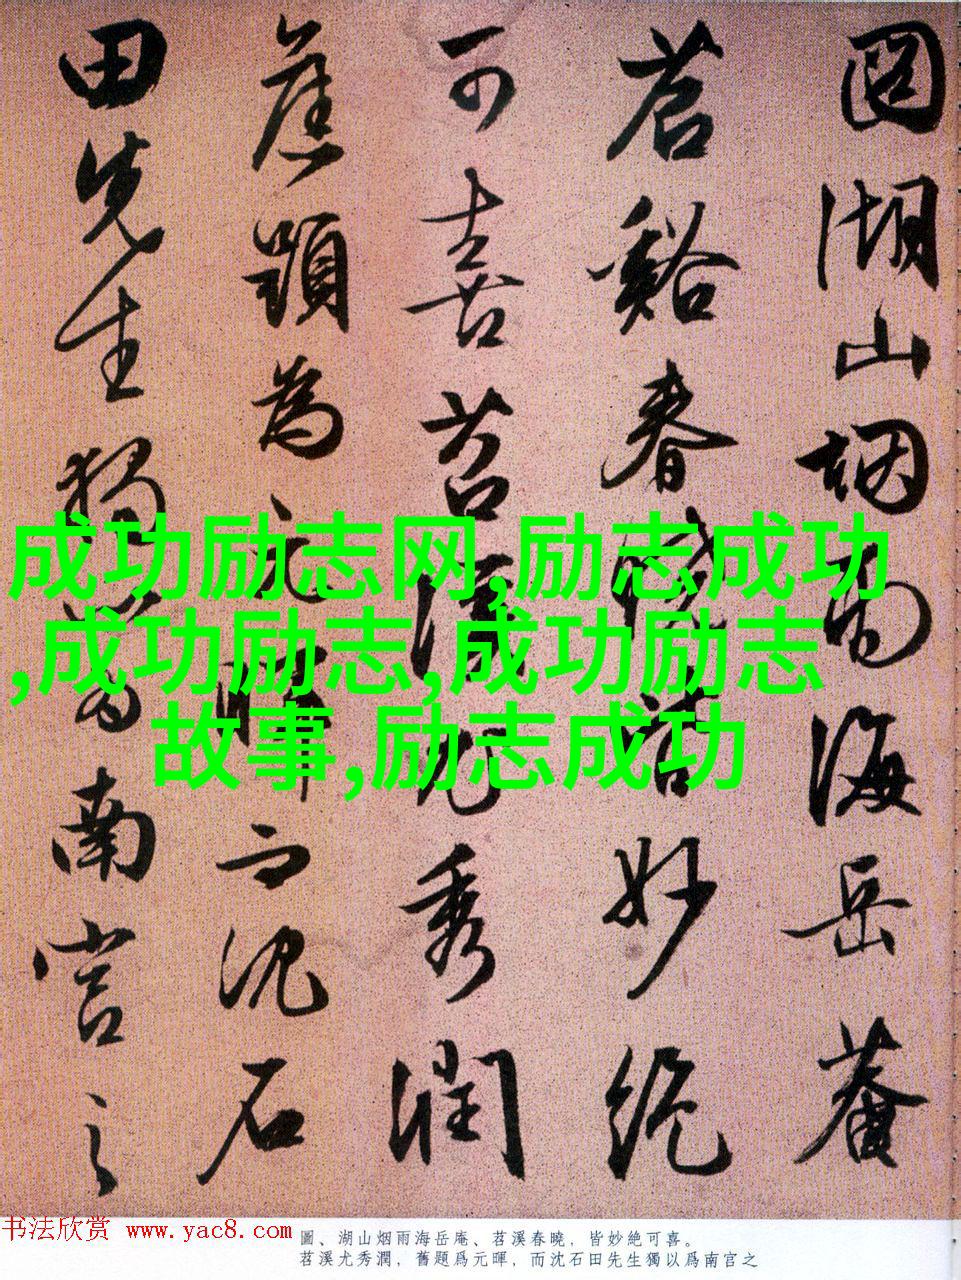 圖湖山烟雨海岳菴
苕谿春曉皆妙絶
可喜苕溪尤秀潤
舊題為元暉而沈石
田先生獨以為南宫之
成功励志网,励志成功
,成功励志,成功励志
故事,励志成功
书法欣赏 www.yac8.com
圖、湖山烟雨海岳庵、苕溪春曉，皆妙絶可喜。
苕溪尤秀潤，舊題爲元暉，而沈石田先生獨以爲南宫之